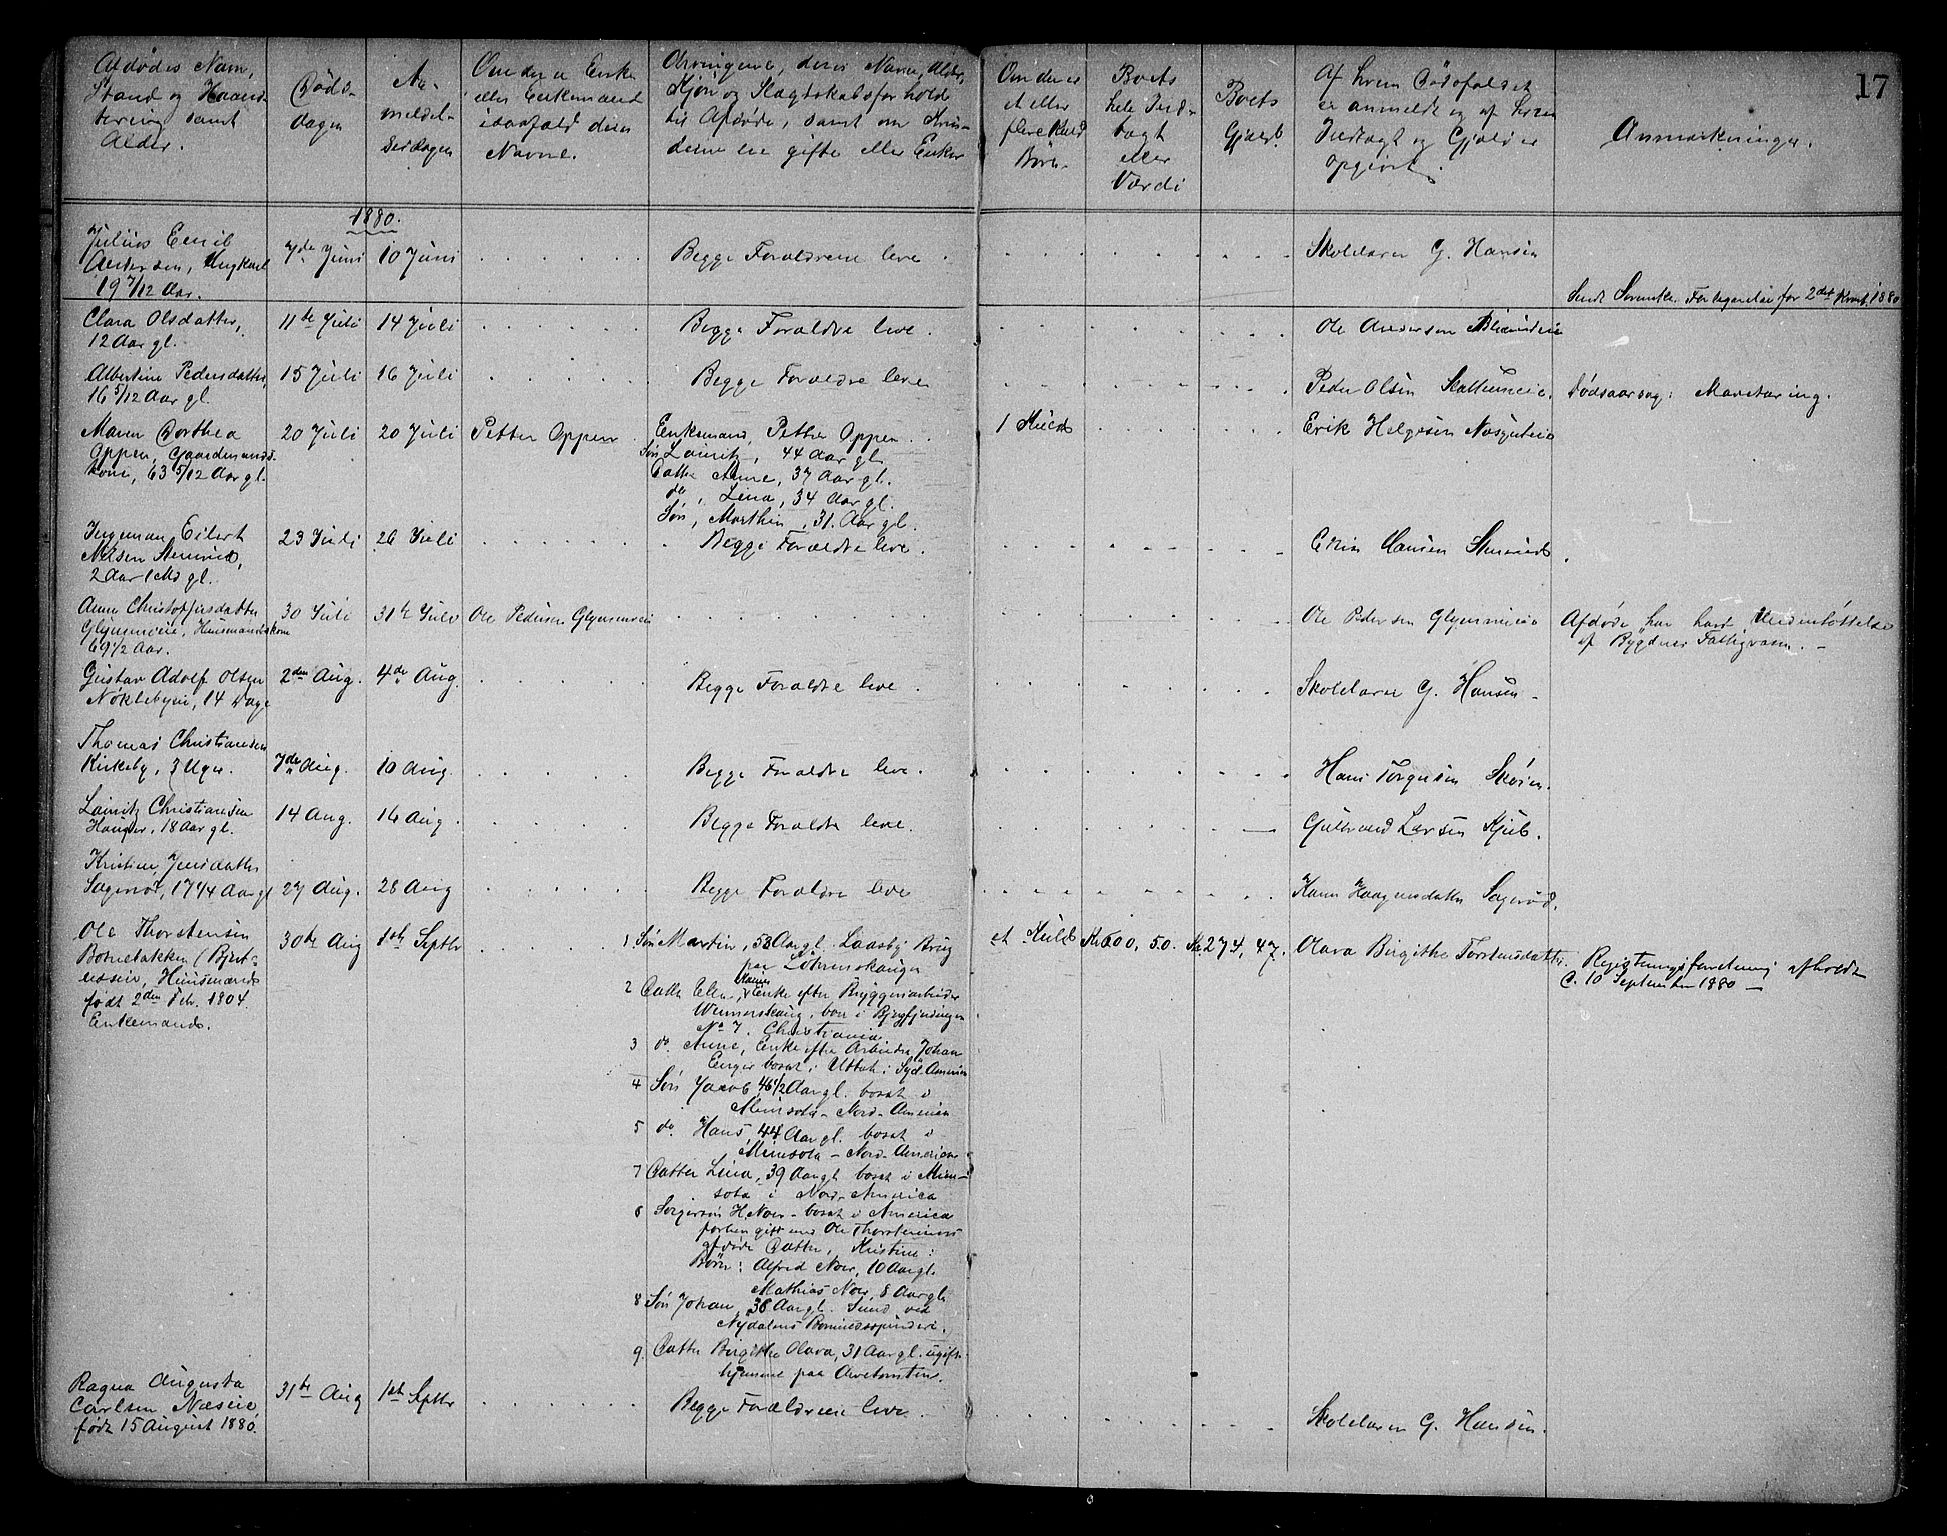 17
Afdødes Navn,
Stand og Haand-
tering samt
Alder.
Døds-
dagen
An-
meldel-
sesdagen
Om der er Enke
eller Enkemand
isaafald deres
Navne.
Arvingene, deres Navne, Alder,
Kjøn og Slægtskabsforhold
til Afdøde, samt om Kvin-
derne ere gifte eller Enker
Om der er
et eller
flere Kuld
Børn
Boets
hele Ind-
tægt
eller
Værdi
Boets
Gjæld.
Af hvem Dødsfaldet
er anmeldt og af hvem
Indtægt og Gjæld er
opgivet.
Anmærkninger.
1880.
Julius Emil
Andersen, Ungkarl
19 7/12 Aar.
7de Juni
10 Juni
Begge Forældrene leve.
Skolelærer G. Hansen
Sendt Fortegnelse for 2det Kvart. 1880
Clara Olsdatter,
12 Aar gl.
11te Juli
14 Juli
Begge Forældre leve.
Ole Andersen
Albertine Pedersdatter,
16 5/12 Aar gl.
15 Juli
16 Juli
Begge Forældre leve
Peder Olsen
Dødsaarsag: Mavetæring.
Maren Dorthea
Oppen, Gaardmands-
kone, 63 5/12 Aar gl.
20 Juli
20 Juli
Petter Oppen
Enkemand, Petter Oppen.
Søn Lauritz, 44 Aar gl.
Datter Anne, 37 Aar gl.
do, Lina, 34 Aar gl.
Søn, Marthin, 31. Aar gl.
1 Kuld
Erik Helgesen
Ingeman Eilert
Nilsen
2 Aar 1 Md gl.
23 Juli
26 Juli
Begge Forældre leve.
Hansen
Anne Christophersdatter
Husmandskone
69 1/2 Aar.
30 Juli
31te Juli
Ole Pedersen
Ole Pedersen
Afdøde har havt Understøttelse
af Bygdens Fattigvæsen. —
Gustav Adolf Olsen
Nøklebyeie, 14 Dage
2den Aug.
4de Aug.
Begge Forældre leve.
Skolelærer G. Hansen —
Thomas Christiansen
Kirkeby, 3 Uger.
7de Aug.
10 Aug.
Begge Forældre leve.
Hans Torgersen
Lauritz Christiansen
Hauger, 18 Aar gl.
14 Aug.
16 Aug.
Begge Forældre leve.
Gulbrand Larsen
Kristine Jensdatter
17 4/4 Aar gl
27 Aug.
28 Aug
Begge Forældre leve
Karen Haagensdatter
Ole Thorstensen
Husmand
født 2den Feb. 1804.
Enkemand.
30te Aug
1ste Septbr
1 Søn Martin, 53 Aar gl.
2 Datter Elen Karine, Enke efter Bryggeriarbeider
boer i
No 7. Christiania
3 do. Anne, Enke efter Arbeider Johan
Enger bosat i Syd-Amerika
4 Søn Jacob 46 1/2 Aar gl. bosat i
Minisota - Nord-Amerika
5 do. Hans, 44 Aar gl. bosat i
Minesota - Nord-Amerika
7 Datter Lina, 39 Aar gl. bosat i Mine-
sota i Nord-America
6 Svigersøn H. Noer - bosat i America
forhen gift med Ole Thorstensens
afdøde Datter, Kristine:
Børn: Alfred Noer, 10 Aar gl.
Mathias Noer, 8 Aar gl.
8 Søn Johan, 36 Aar gl. Smed ved
Nydalens Bomuldsspinderi.
9. Datter Birgithe Olava, 31 Aar gl. ugift
hjemme paa Arvetomten.
et Kuld
Kr. 600, 50.
Kr. 274, 47.
Olava Birgithe Torstensdatter.
Registreringsforretning afholdt
d. 10 September 1880 —
Ragna Augusta
Carlsen Næseie
født 15 August 1880.
31te Aug
1ste Septbr
Begge Forældrene leve.
Skolelærer G. Hansen.